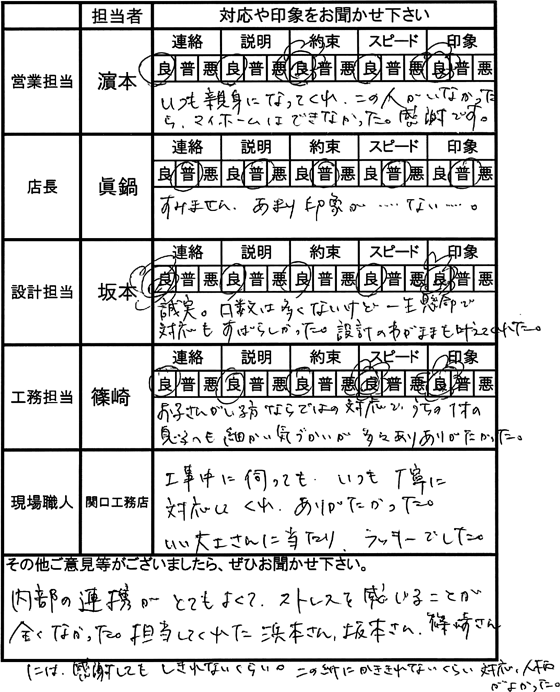 担当者 対応や印象をお聞かせ下さい
営業担当 濵本
連絡 説明 約束 スピード 印象
良 普 悪 良 普 悪 良 普 悪 良 普 悪 良 普 悪
いつも親身になってくれ、この人がいなかった
ら、マイホームはできなかった。感謝です。
店長 眞鍋
連絡 説明 約束 スピード 印象
良 普 悪 良 普 悪 良 普 悪 良 普 悪 良 普 悪
すみません、あまり印象が……ない……。
設計担当 坂本
連絡 説明 約束 スピード 印象
良 普 悪 良 普 悪 良 普 悪 良 普 悪 良 普 悪
誠実。口数は多くないけど一生懸命で
対応もすばらしかった。設計のわがままも叶えてくれた。
工務担当 篠崎
連絡 説明 約束 スピード 印象
良 普 悪 良 普 悪 良 普 悪 良 普 悪 良 普 悪
お子さんがいる方ならではの対応で、うちの1才の
息子へも細かい気づかいが多々ありありがたかった。
現場職人 関口工務店
工事中に伺っても、いつも丁寧に
対応してくれ、ありがたかった。
いい大工さんに当たり、ラッキーでした。
その他ご意見等がございましたら、ぜひお聞かせ下さい。
内部の連携がとてもよくて、ストレスを感じることが
全くなかった。担当してくれた浜本さん、坂本さん、篠崎さん
には、感謝してもしきれないくらい。この紙にかききれないくらい対応、人柄
がよかった。